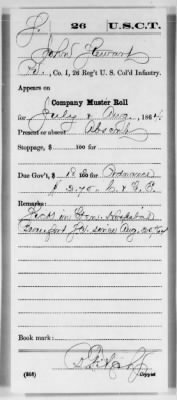 S. 26 U.S.C.T.
John Stewart
Pvt., Co. I, 26 Reg't U. S. Col'd Infantry.
Appears on
Company Muster Roll
for July & Aug., 1864.
Present or absent Absent
Stoppage, $ 100 for
Due Gov't, $ 100 for Ordnance
$ 2.70
Remarks:
Sick in Gen. Hospital
since Aug.
Book mark:
(358) Copyist.